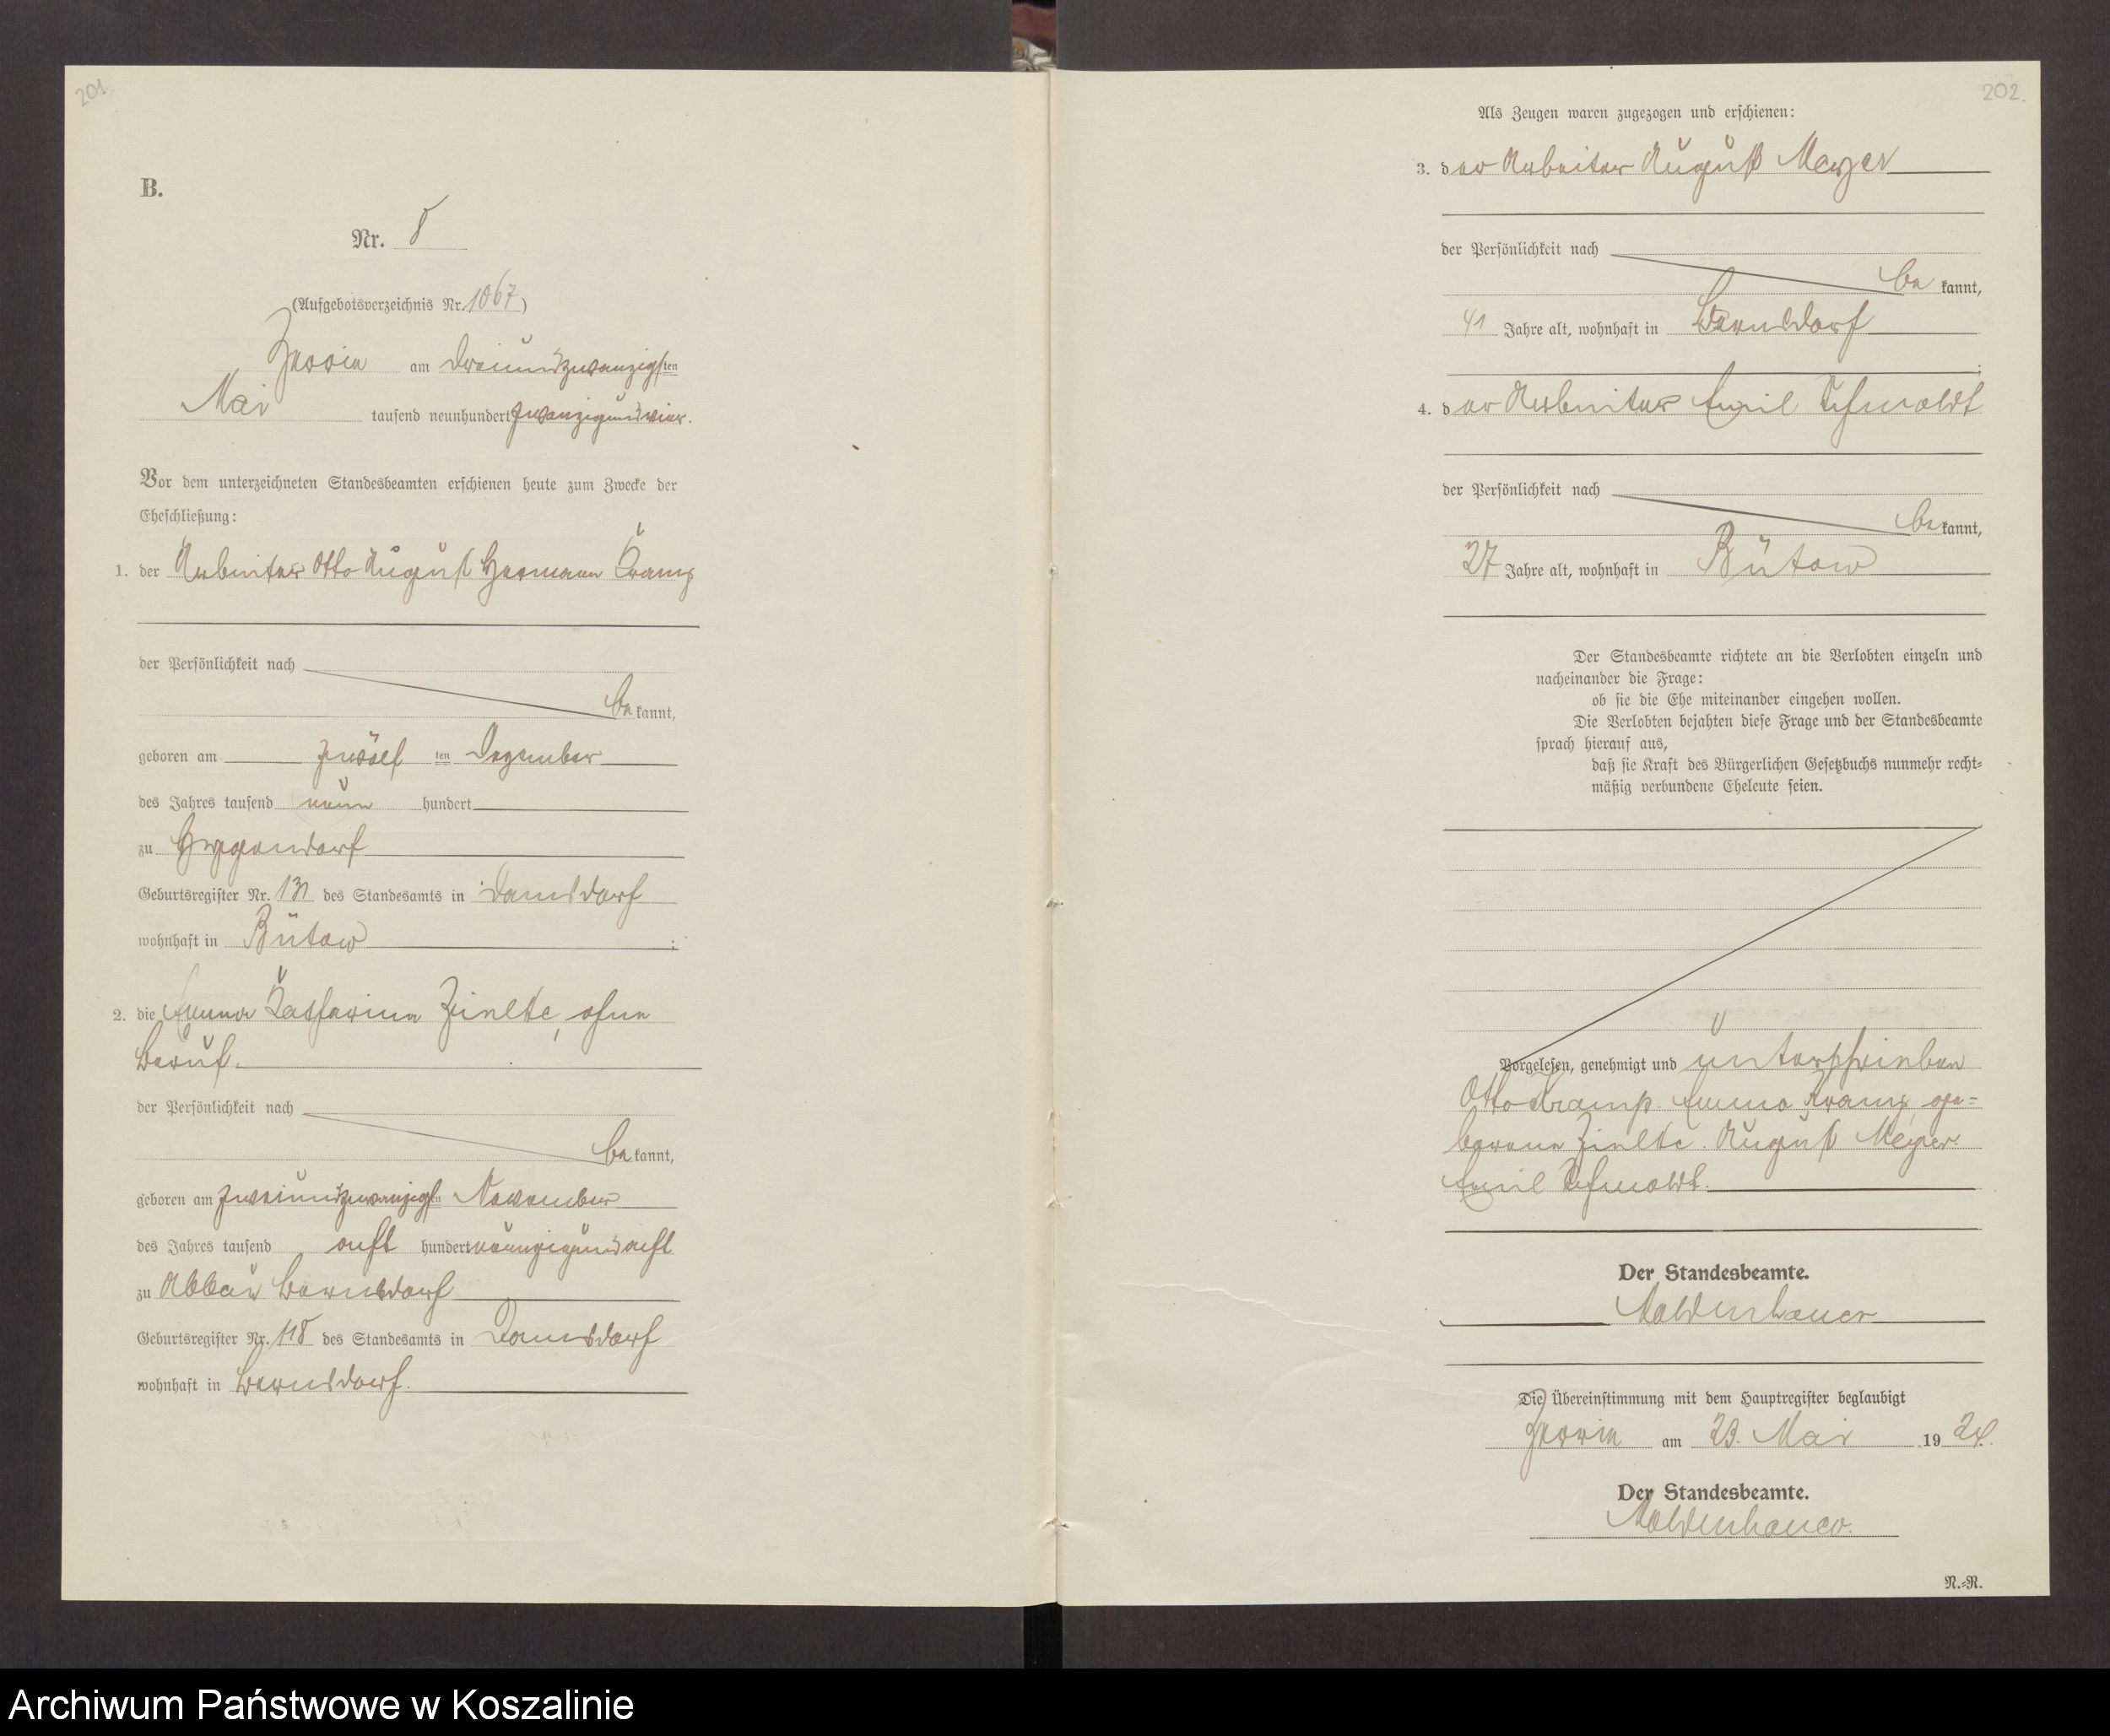 201.
B.
Nr. 8
(Aufgebotsverzeichnis Nr. 1067)
Zerrin am dreiundzwanzigsten
Mai tausend neunhundert zwanzigundvier.
Vor dem unterzeichneten Standesbeamten erschienen heute zum Zwecke der
Eheschließung:
1. der Arbeiter Otto August Hermann Kramp
der Persönlichkeit nach
be kannt,
geboren am zwölf ten Dezember
des Jahres tausend neun hundert
zu Hygendorf
Geburtsregister Nr. 131 des Standesamts in Damsdorf
wohnhaft in Bütow ;
2. die Emma Katharina Zielke, ohne
Beruf.
der Persönlichkeit nach
be kannt,
geboren am zweiundzwanzigsten November
des Jahres tausend acht hundert neunzigundacht
zu Abbau Bernsdorf
Geburtsregister Nr. 118 des Standesamts in Damsdorf
wohnhaft in Bernsdorf.
202.
Als Zeugen waren zugezogen und erschienen:
3. der Arbeiter August Meyer
der Persönlichkeit nach
be kannt,
41 Jahre alt, wohnhaft in Bernsdorf
;
4. der Arbeiter Emil Schwoldt
der Persönlichkeit nach
be kannt,
27 Jahre alt, wohnhaft in Bütow
Der Standesbeamte richtete an die Verlobten einzeln und
nacheinander die Frage:
ob sie die Ehe miteinander eingehen wollen.
Die Verlobten bejahten diese Frage und der Standesbeamte
sprach hierauf aus,
daß sie Kraft des Bürgerlichen Gesetzbuchs nunmehr recht-
mäßig verbundene Eheleute seien.
Vorgelesen, genehmigt und unterschrieben
Otto Kramp. Emma Kramp ge-
borene Zielke. August Meyer.
Emil Schwoldt.
Der Standesbeamte.
Moldenhauer
Die Übereinstimmung mit dem Hauptregister beglaubigt
Zerrin am 23. Mai 1924.
Der Standesbeamte.
Moldenhauer.
N.-R.
Archiwum Państwowe w Koszalinie